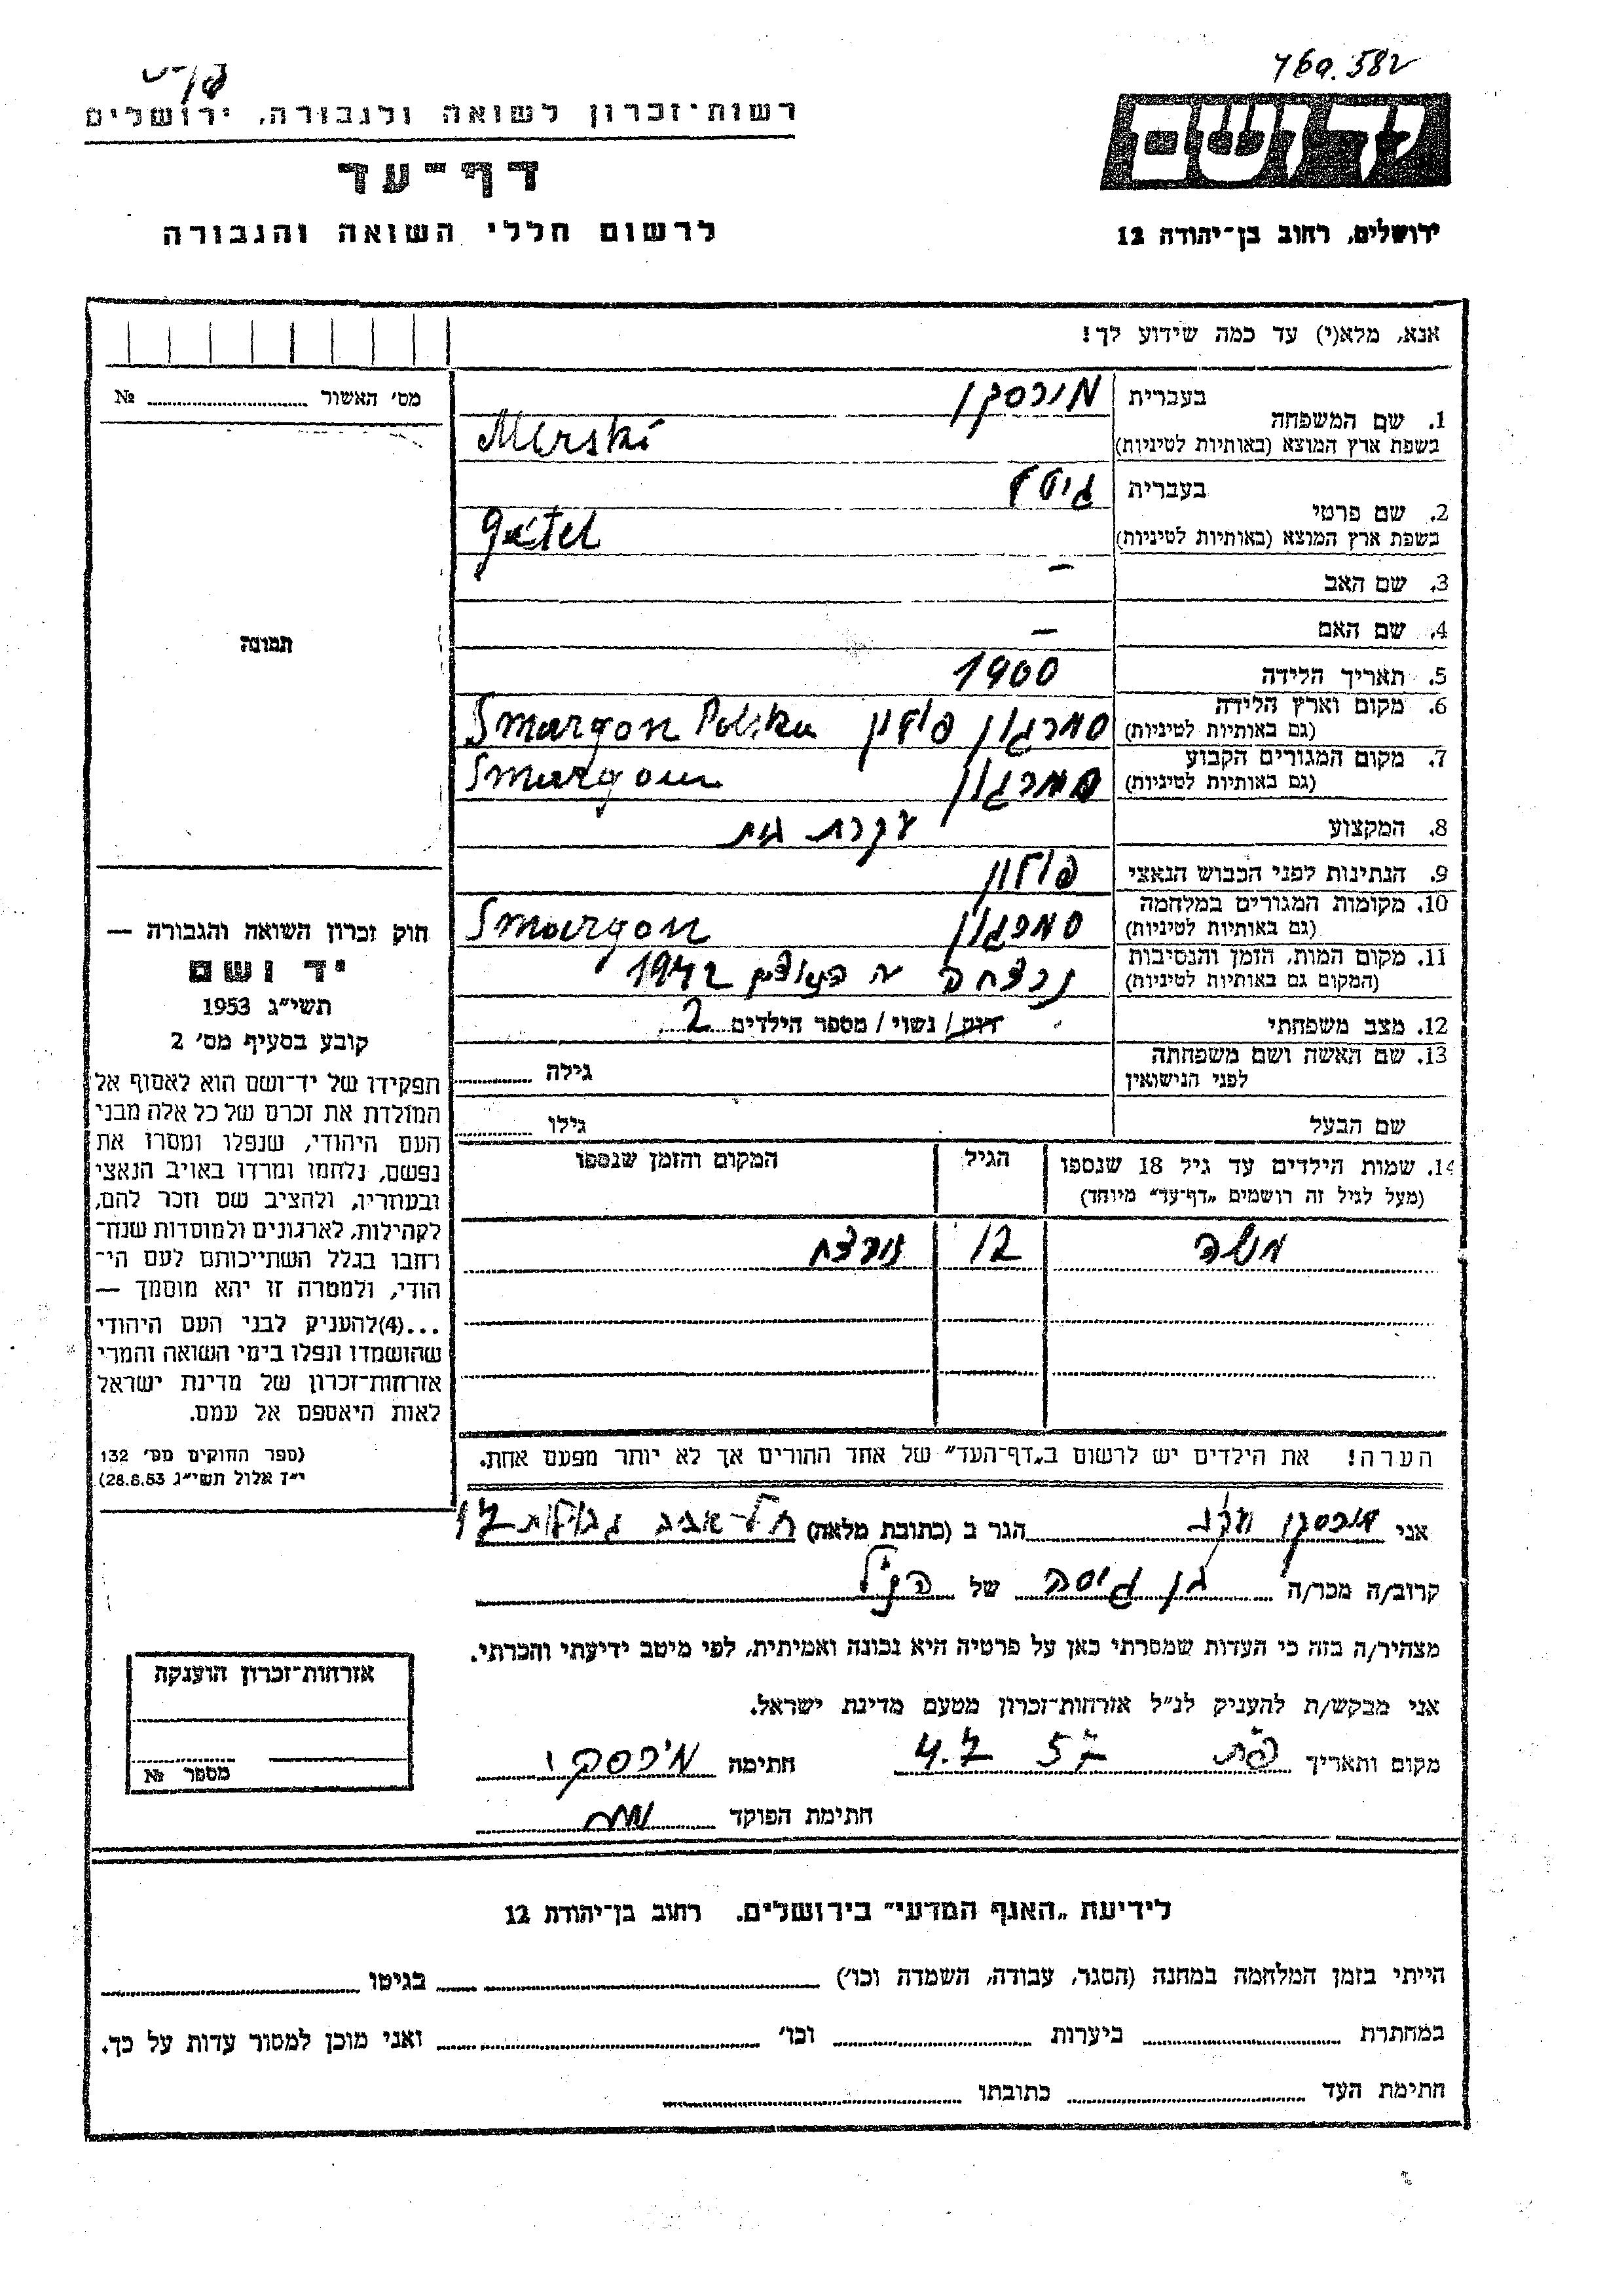 460.582
רשות־זכרון לשואה ולגבורה, ירושלים
יד ושם
דף־עד
לרשום חללי השואה והגבורה
ירושלים, רחוב בן־יהודה 12
אנא, מלא(י) עד כמה שידוע לך!
מס׳ האשור № 
1. שם המשפחה
בעברית מירסקי
בשפת ארץ המוצא (באותיות לטיניות) Mirski
2. שם פרטי
בעברית גיטל
בשפת ארץ המוצא (באותיות לטיניות) Gitel
3. שם האב —
4. שם האם —
5. תאריך הלידה 1900
6. מקום וארץ הלידה (גם באותיות לטיניות) סמרגון פולין Smargon Polska
7. מקום המגורים הקבוע (גם באותיות לטיניות) סמרגון Smargon
8. המקצוע עקרת בית
9. הנתינות לפני הכבוש הנאצי פולין
10. מקומות המגורים במלחמה (גם באותיות לטיניות) סמרגון Smorgon
11. מקום המות, הזמן והנסיבות (המקום גם באותיות לטיניות) נרצחה 1942
12. מצב משפחתי רווק / נשוי / מספר הילדים 2
13. שם האשה ושם משפחתה לפני הנישואין גילה
שם הבעל גילו
14. שמות הילדים עד גיל 18 שנספו (מעל לגיל זה רושמים „דף־עד״ מיוחד) הגיל המקום והזמן שנספו
משה 12 נרצח
הערה! את הילדים יש לרשום ב„דף־העד״ של אחד ההורים אך לא יותר מפעם אחת.
תמונה
חוק זכרון השואה והגבורה —
יד ושם
תשי״ג 1953
קובע בסעיף מס׳ 2
תפקידו של יד־ושם הוא לאסוף אל
המולדת את זכרם של כל אלה מבני
העם היהודי, שנפלו ומסרו את
נפשם, נלחמו ומרדו באויב הנאצי
ובעוזריו, ולהציב שם וזכר להם,
לקהילות, לארגונים ולמוסדות שנח־
רחבו בגלל השתייכותם לעם הי־
הודי, ולמטרה זו יהא מוסמך —
...(4)להעניק לבני העם היהודי
שהושמדו ונפלו בימי השואה והמרי
אזרחות־זכרון של מדינת ישראל
לאות היאספם אל עמם.
(ספר החוקים מס׳ 132
י״ז אלול תשי״ג 28.8.53)
אני מירסקי הגר ב (כתובת מלאה) תל־אביב
קרוב/ה מכר/ה בן גיסה של הנ״ל
מצהיר/ה בזה כי העדות שמסרתי כאן על פרטיה היא נכונה ואמיתית, לפי מיטב ידיעתי והכרתי.
אני מבקש/ת להעניק לנ״ל אזרחות־זכרון מטעם מדינת ישראל.
מקום ותאריך 4.7 57 חתימה מירסקי
חתימת הפוקד
אזרחות־זכרון הוענקה
מספר №
לידיעת „האגף המדעי״ בירושלים. רחוב בן־יהודה 12
הייתי בזמן המלחמה במחנה (הסגר, עבודה, השמדה וכו׳) בגיטו
במחתרת ביערות וכו׳ ואני מוכן למסור עדות על כך.
חתימת העד כתובתו